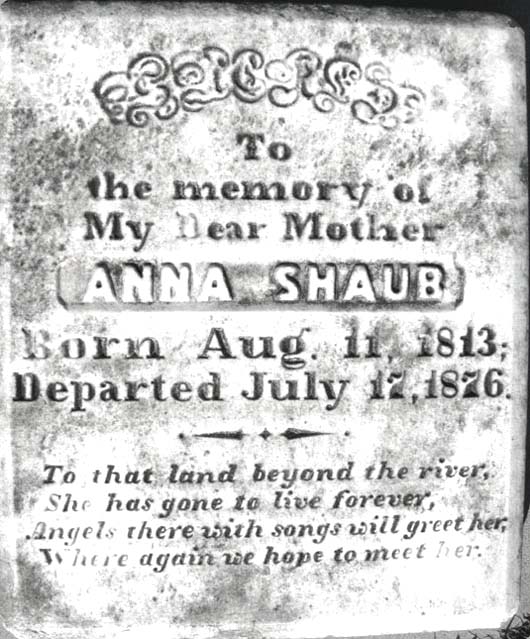 To
the memory of
My Dear Mother
ANNA SHAUB
Born Aug. 11, 1813;
Departed July 17, 1876.
To that land beyond the river,
She has gone to live forever,
Angels there with songs will greet her,
Where again we hope to meet her.